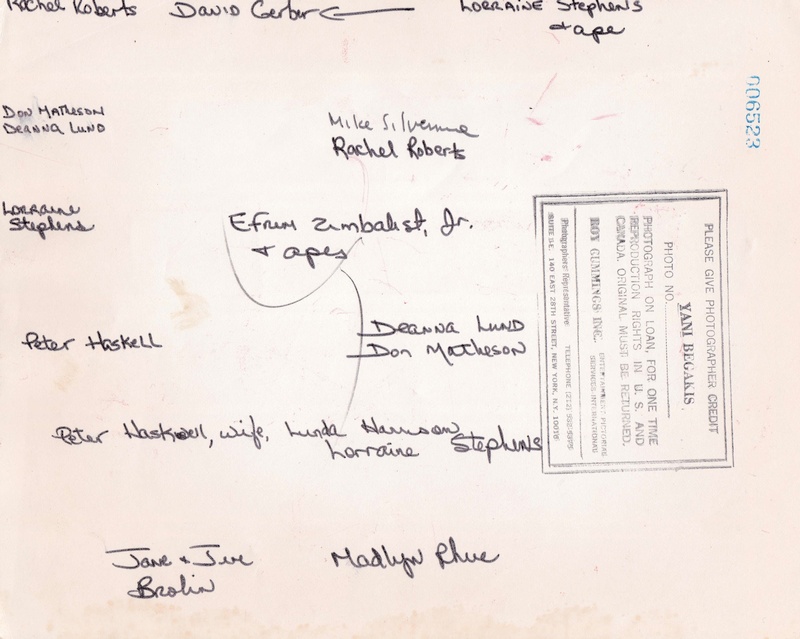 Rachel Roberts David Gerber Lorraine Stephens
+ ape
Don Matheson
Deanna Lund
Mike Silverman
Rachel Roberts
Lorraine
Stephens
Efrem Zimbalist, Jr.
+ apes
Peter Haskell
Deanna Lund
Don Matheson
Peter Haskell, wife, Linda Harrison
Lorraine Stephens
Jane + Jim
Brolin
Madlyn Rhue
006523
PLEASE GIVE PHOTOGRAPHER CREDIT
YANI BEGAKIS
PHOTO NO.
PHOTOGRAPH ON LOAN, FOR ONE TIME
REPRODUCTION RIGHTS IN U. S. AND
CANADA. ORIGINAL MUST BE RETURNED.
ENTERTAINMENT PICTORIAL
SERVICES INTERNATIONAL
ROY CUMMINGS INC.
Photographers' Representative TELEPHONE (212)
SUITE 5-E 140 EAST 28TH STREET, NEW YORK, N.Y. 10016